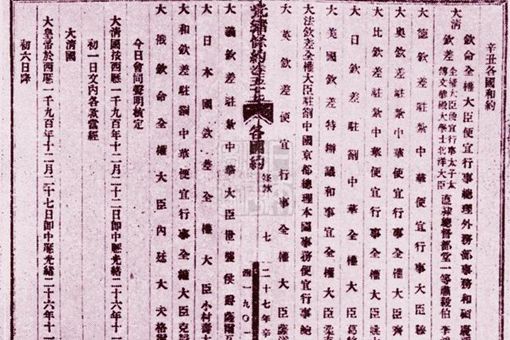 辛丑各國和約
大清欽命全權大臣便宜行事總理外務部事務和碩慶
欽差全權大臣便宜行事太子太
傅文華殿大學士北洋大臣
直隸總督部堂一等肅毅伯李
大德欽差駐劄中華便宜行事大臣穆
大奧欽差駐劄中華便宜行事全權大臣齊
大比欽差駐劄中華便宜行事全權大臣姚
大日欽差駐劄中華全權大臣葛
大美國欽差特辦議和事宜全權大臣柔
大法欽差全權大臣駐劄中國京都總理本國事務便宜行事鮑
大英欽差便宜行事全權大臣薩
光緒條約
各國約
七
二十七年辛
西一九〇一
大義欽差駐劄中華大臣世襲侯爵薩爾瓦
大日本國欽差全權大臣小村壽
大和欽差駐劄中華便宜行事全權大臣克
大俄欽命全權大臣內廷大夫格爾
今日會同聲明核定
大清國按西歷一千九百年十二月二十二日即中歷光緒二十六年十一
初一日文內各款當經
大清國
大皇帝於西歷一千九百年十二月二十七日即中歷光緒二十六年十一
初六日降